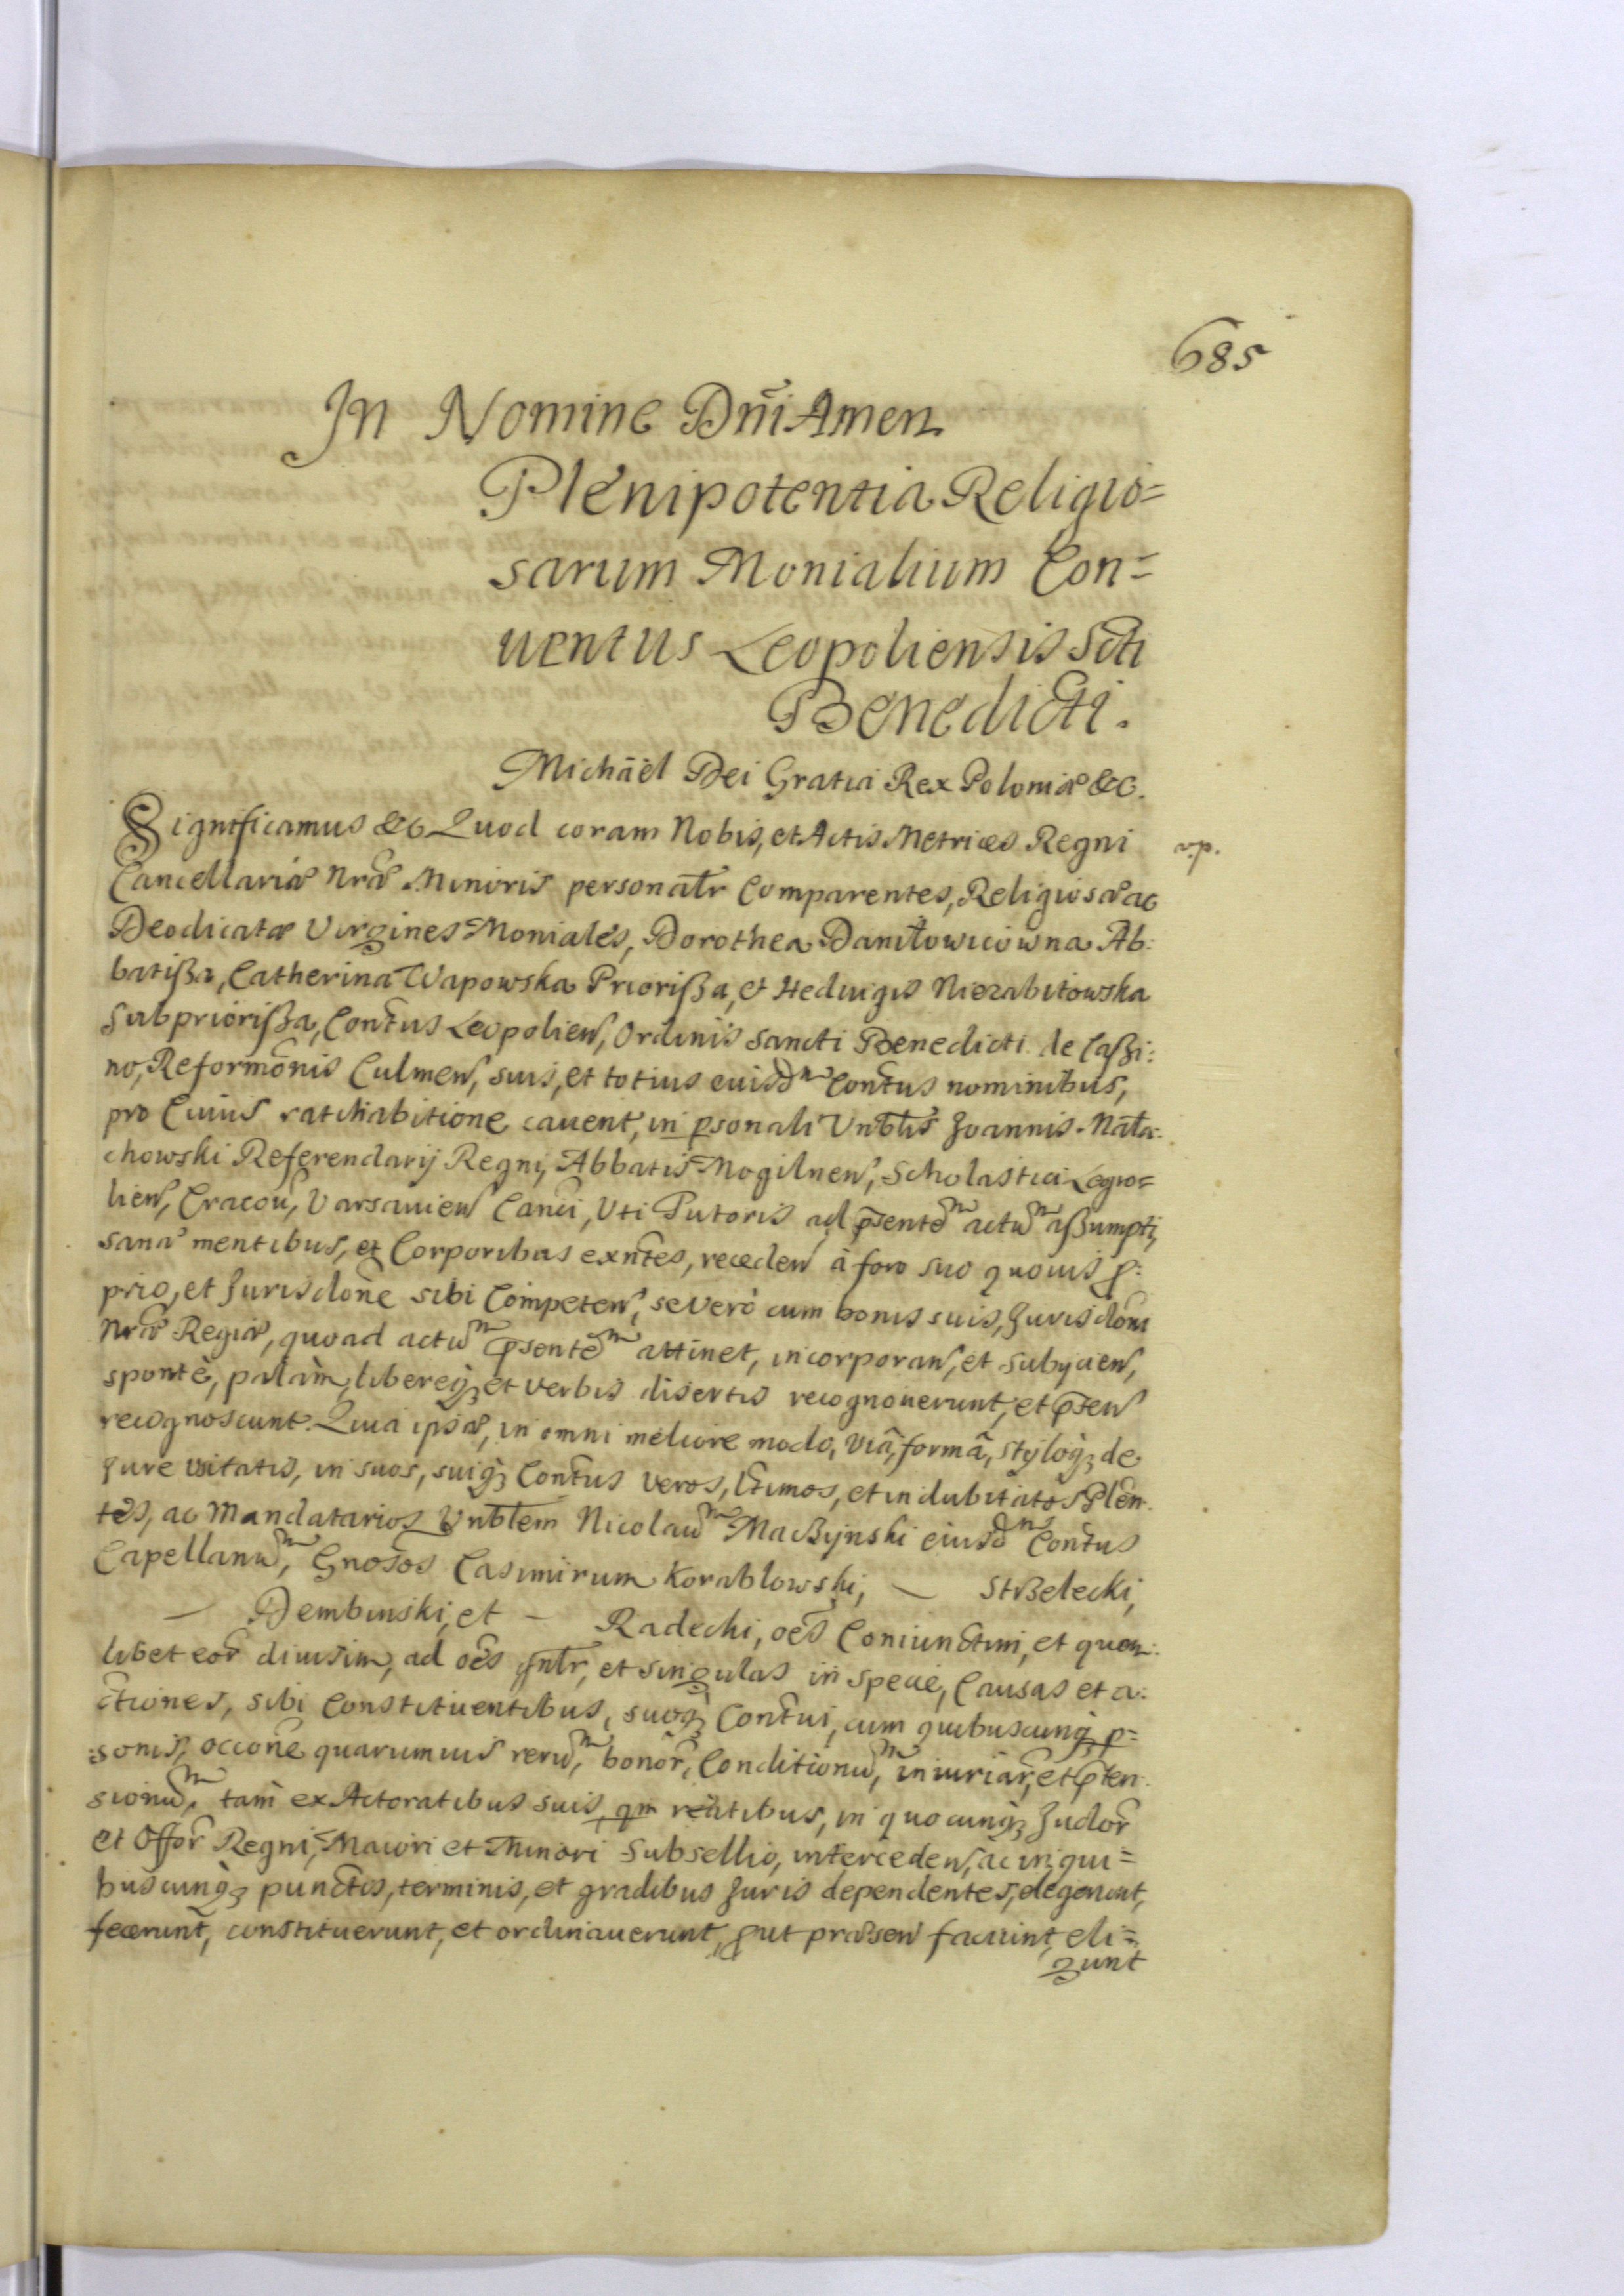 685
In Nomine Dñi Amen
Plenipotentia Religio=
sarum Monialium Con=
uentus Leopoliensis Scti
Benedicti.
Michäel Dei Gratia Rex Poloniæ &c.
Significamus &c Quod coram Nobis, et Actis Metrices Regni
v.p.
Cancellariæ Nræ Minoris personatr Comparentes, Religiosæ ac
Deodicatæ Virgines Moniales, Dorothea Daniłowicowna Ab:
batißa, Catherina Wapowska Priorißa, et Heduigis Niezabitowska
Subpriorißa, Contus Leopolien, Ordinis Sancti Benedicti de Caßi:
no, Reformonis Culmen, suis, et totius euisd Contus nominibus,
pro Cuius ratihabitione cauent, in psonali Vnblis Joannis Mała:
chowski Referendarij Regni, Abbatis Mogilnen, Scholastici Leopo=
lien, Cracou, Varsauien Canci, Uti Tutoris ad psentem actum aßumpti,
sanæ mentibus, et Corporibus exntes, receden à foro suo quouis p:
prio, et Jurisdone sibi Competen, se verò cum bonis suis, Jurisdoni
Nræ Regiæ, quoad actum psentem attinet, incorporan, et subijcien,
spontè, palàm, libereq; et verbis disertis recognouerunt, et pten
recognoscunt. Quia ipsæ, in omni meliore modo, viâ, formâ, styloq; de
jure usitatis, in suos, suiq; Contus veros, ltimos, et indubitatos Plen:
tes, ac Mandatarios Vnblem Nicolaum Maßynski eiusdm Contus
Capellanum, Gnosos Casimirum Korablowski, — Stßelecki,
— Dembinski, et — Radecki, oes Coniunctim, et quem:
libet eor diuisim, ad oes gnlr, et singulas in specie, Causas et a:
ctiones, sibi Constituentibus, suoq; Contui, cum quibuscunq; p=
sonis, occone quarumuis rerum, bonor, Conditionum, iniuriar, et pten:
sionum, tam ex Actoratibus suis, qm reatibus, in quocunq; Judor
et Offor Regni, Maiori et Minori Subsellio, interceden, ac in qui=
buscunq; punctis, terminis, et gradibus Juris dependentes, elegerunt,
fecerunt, constituerunt, et ordinauerunt, put præsen faciunt, eli=
gunt